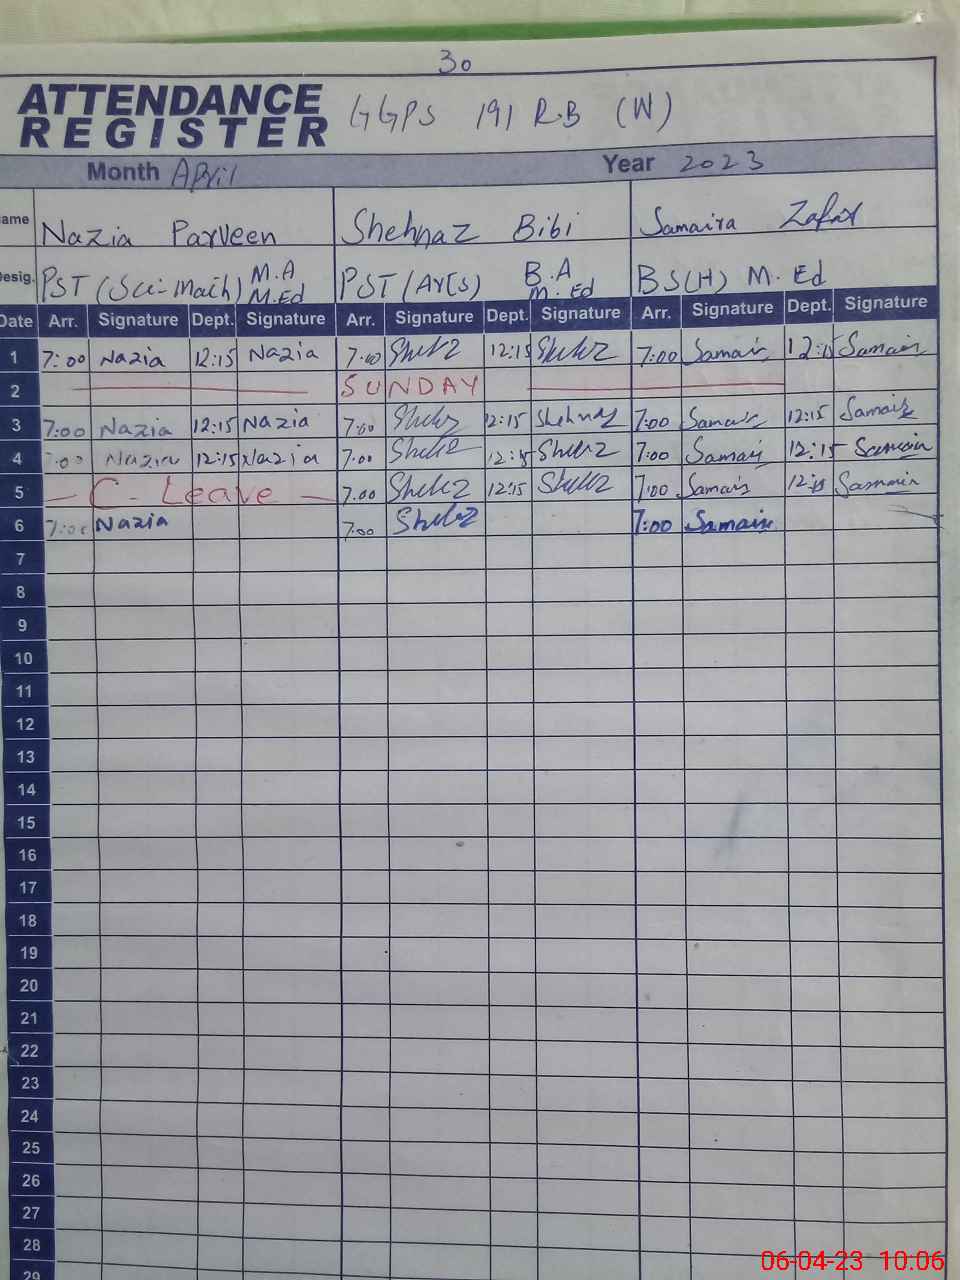 30
ATTENDANCE REGISTER GGPS 191 R.B (W)
Month April Year 2023
ame Nazia Parveen Shehnaz Bibi Samaira Zafar
Desig. PST (Sci-Math) M.A M.Ed PST (Arts) B.A M.Ed BS(H) M.Ed
Date Arr. Signature Dept. Signature Arr. Signature Dept. Signature Arr. Signature Dept. Signature
1 7:00 Nazia 12:15 Nazia 7.00 12:15 7:00 Samair 12:15 Samair
2 SUNDAY
3 7:00 Nazia 12:15 Nazia 7.00 12:15 Shehnaz 7:00 Samair 12:15 Samair
4 7:00 Nazia 12:15 Nazia 7.00 12:15 7:00 Samair 12:15 Samair
5 C- Leave 7.00 12:15 7:00 Samair 12:15 Samair
6 7:00 Nazia 7:00 7:00 Samair
7
8
9
10
11
12
13
14
15
16
17
18
19
20
21
22
23
24
25
26
27
28
29
06-04-23 10.06